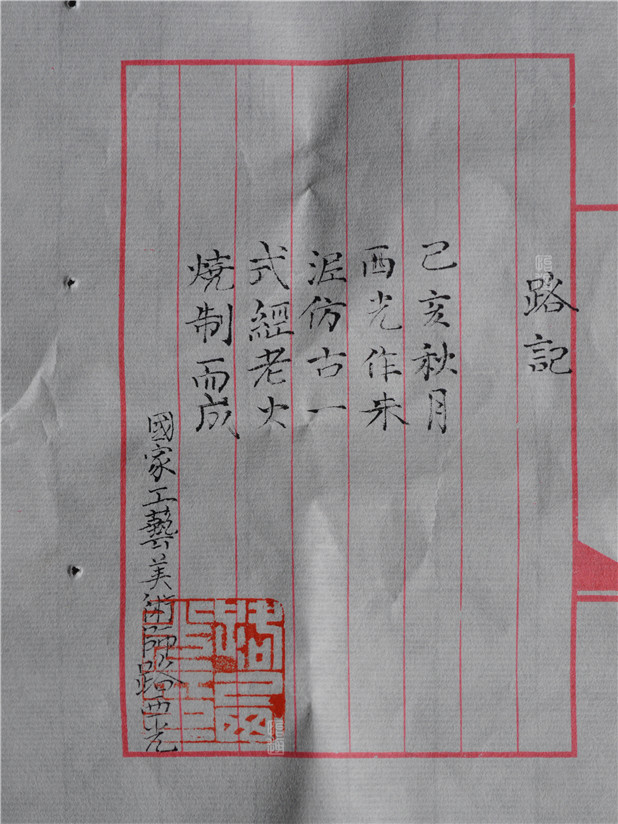 路記
己亥秋月
西光作朱
泥仿古一
式經老火
燒制而成
國家工藝美術師路西光